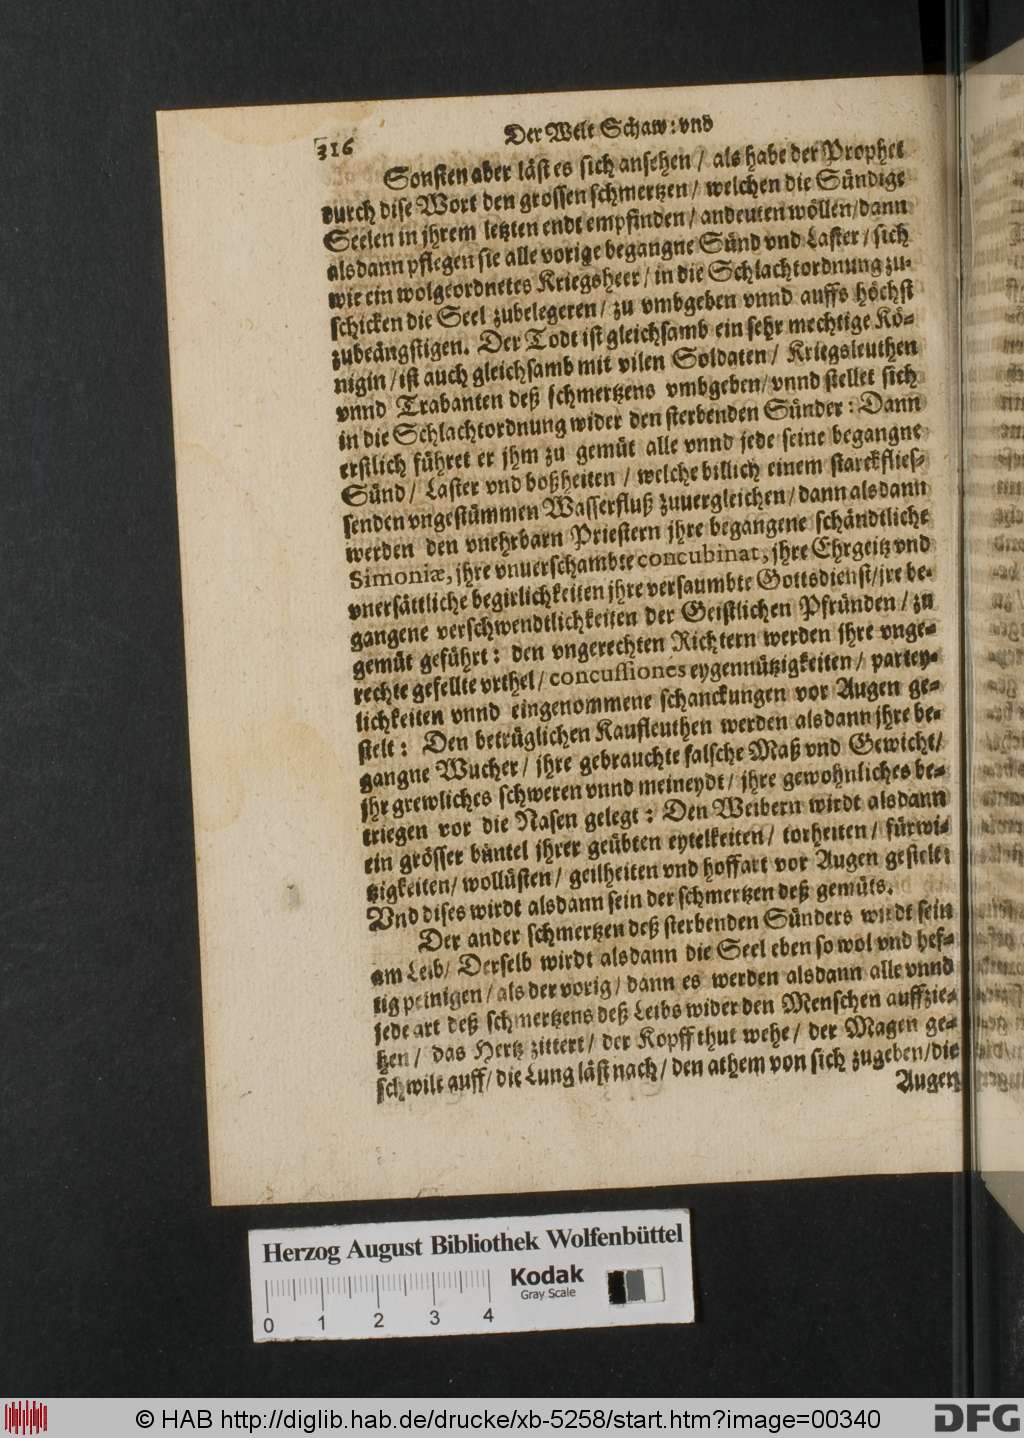 316
Der Welt Schaw: vnd
Sonsten aber läst es sich ansehen / als habe der Prophet
durch dise Wort den grossen schmertzen / welchen die Sündige
Seelen in jhrem letzten endt empfinden / andeuten wöllen / dann
alsdann pflegen sie alle vorige begangne Sünd vnd Laster / sich
wie ein wolgeordnetes Kriegsheer / in die Schlachtordnung zu-
schicken die Seel zubelegeren / zu vmbgeben vnnd auffs höchst
zubeängstigen. Der Todt ist gleichsamb ein sehr mechtige Kö-
nigin / ist auch gleichsamb mit vilen Soldaten / Kriegsleuthen
vnnd Trabanten deß schmertzens vmbgeben / vnnd stellet sich
in die Schlachtordnung wider den sterbenden Sünder: Dann
erstlich führet er jhm zu gemüt alle vnnd jede seine begangne
Sünd / Laster vnd boßheiten / welche billich einem starckflies-
senden vngestümmen Wasserfluß zuuergleichen / dann alsdann
werden den vnehrbarn Priestern jhre begangene schändtliche
Simoniæ, jhre vnuerschambte concubinat, jhre Ehrgeitz vnd
vnersättliche begirlichkeiten jhre versaumbte Gottsdienst / jre be-
gangene verschwendtlichkeiten der Geistlichen Pfründen / zu
gemüt geführt: den vngerechten Richtern werden jhre vnge-
rechte gefellte vrthel / concussiones eygennützigkeiten / partey-
lichkeiten vnnd eingenommene schanckungen vor Augen ge-
stelt: Den betrüglichen Kaufleuthen werden alsdann jhre be-
gangne Wucher / jhre gebrauchte falsche Maß vnd Gewicht /
jhr grewliches schweren vnnd meineydt / jhre gewohnliches be-
triegen vor die Nasen gelegt: Den Weibern wirdt alsdann
ein grösser büntel jhrer geübten eytelkeiten / torheiten / fürwi-
tzigkeiten / wollüsten / geilheiten vnd hoffart vor Augen gestelt:
Vnd dises wirdt alsdann sein der schmertzen deß gemüts.
Der ander schmertzen deß sterbenden Sünders wirdt sein
am Leib / Derselb wirdt alsdann die Seel eben so wol vnd hef-
tig peinigen / als der vorig / dann es werden alsdann alle vnnd
jede art deß schmertzens deß Leibs wider den Menschen auffzie-
hen / das Hertz zittert / der Kopff thut wehe / der Magen ge-
schwilt auff / die Lung läst nach / den athem von sich zugeben / die
Augen
Herzog August Bibliothek Wolfenbüttel
Kodak
Gray Scale
0 1 2 3 4
© HAB http://diglib.hab.de/drucke/xb-5258/start.htm?image=00340
DFG